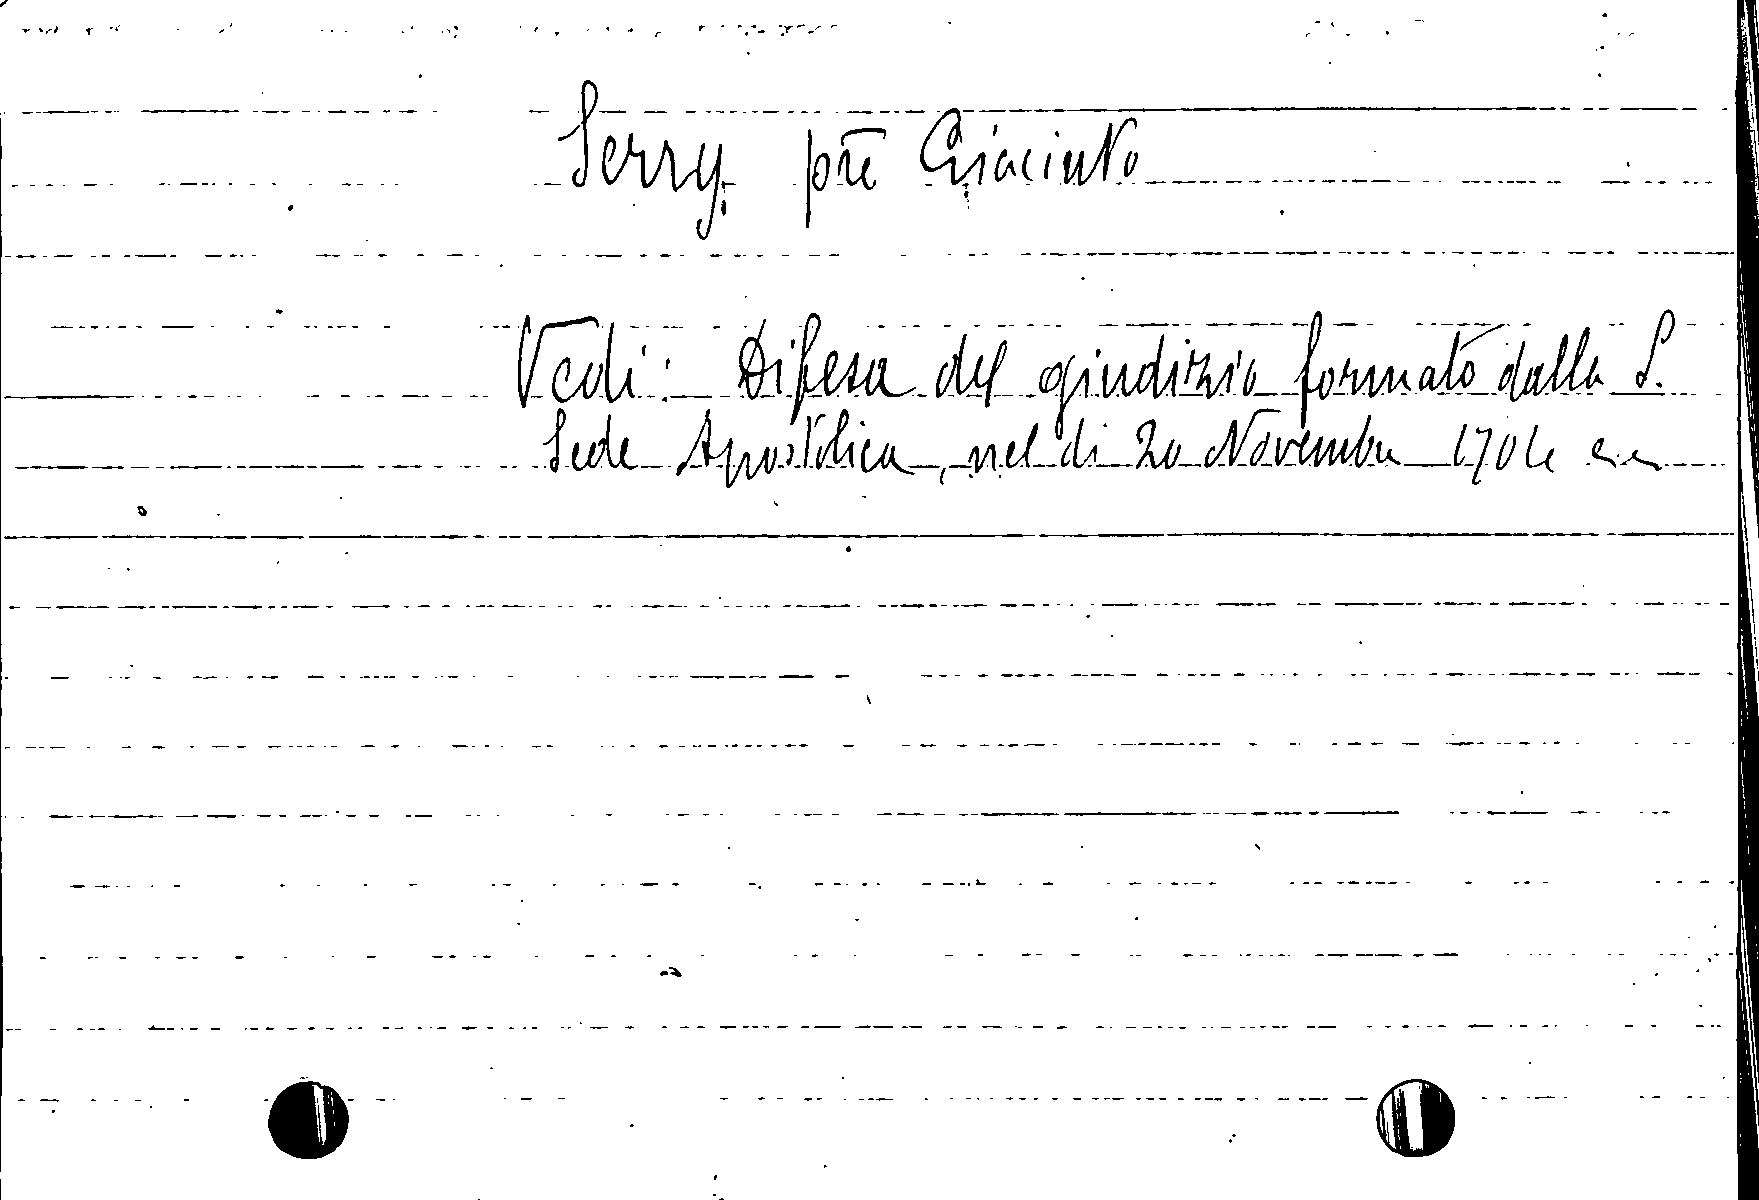 Serry, pre Giacinto
Vedi: Difesa del giudizio formato dalla S.
Sede Apostolica, nel di 20 Novembre 1704 ecc